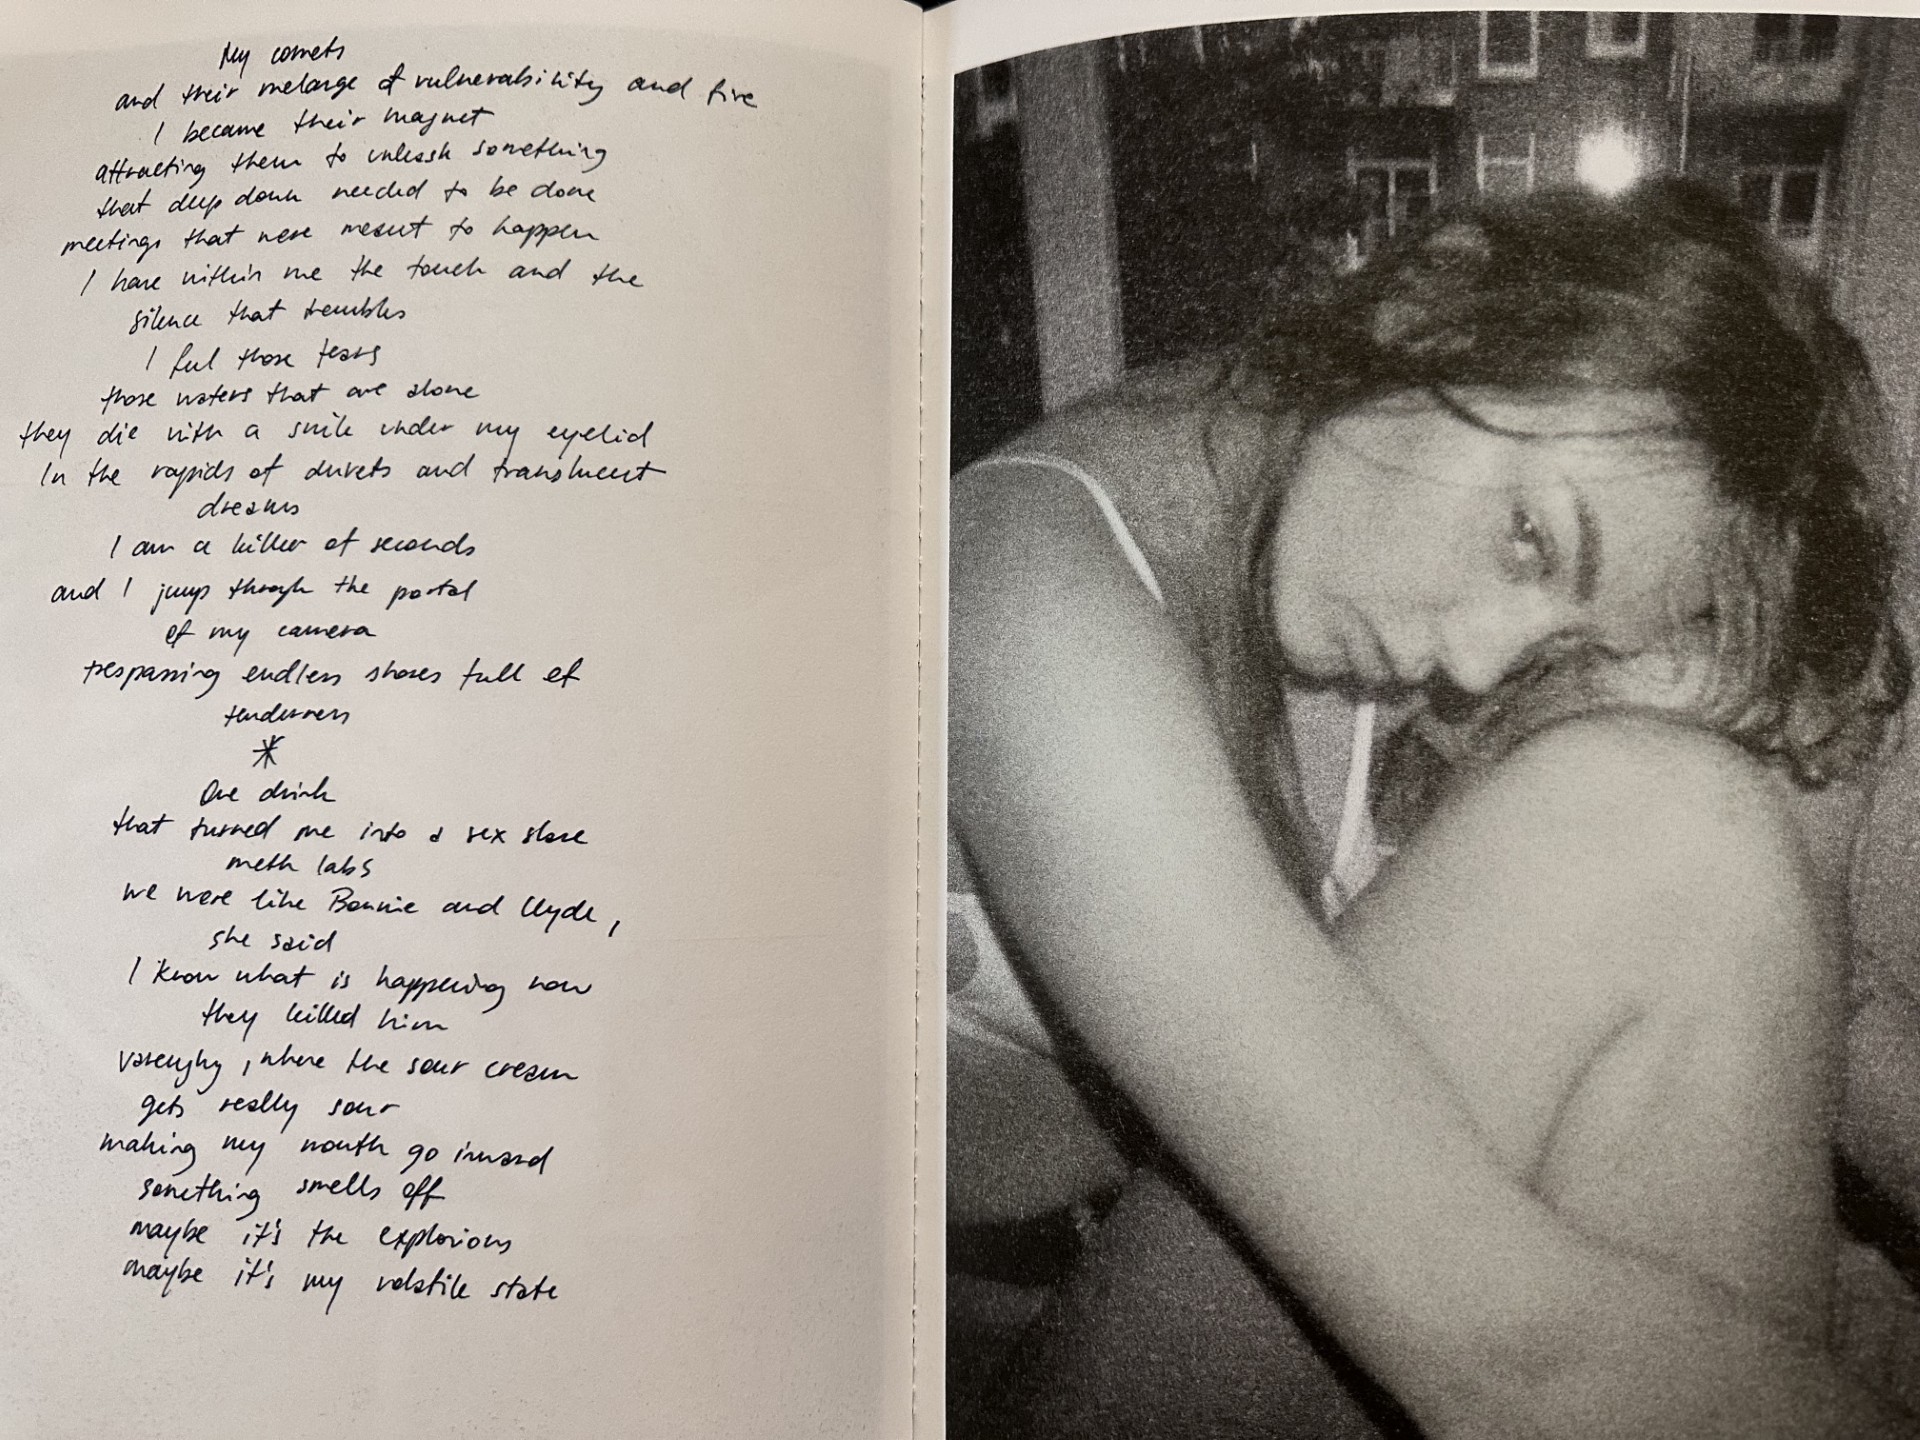 My comets
and their melange of vulnerability and fire
I became their magnet
attracting them to unleash something
that deep down needed to be done
meetings that were meant to happen
I have within me the touch and the
silence that trembles
I feel those tears
those waters that are alone
they die with a smile under my eyelid
In the rapids of duvets and translucent
dreams
I am a killer of seconds
and I jump through the portal
of my camera
trespassing endless shores full of
tenderness
*
One drink
that turned me into a sex slave
meth labs
we were like Bonnie and Clyde,
she said
I know what is happening now
they killed him
varenyky, where the sour cream
gets really sour
making my mouth go inward
something smells off
maybe it's the explosions
maybe it's my volatile state